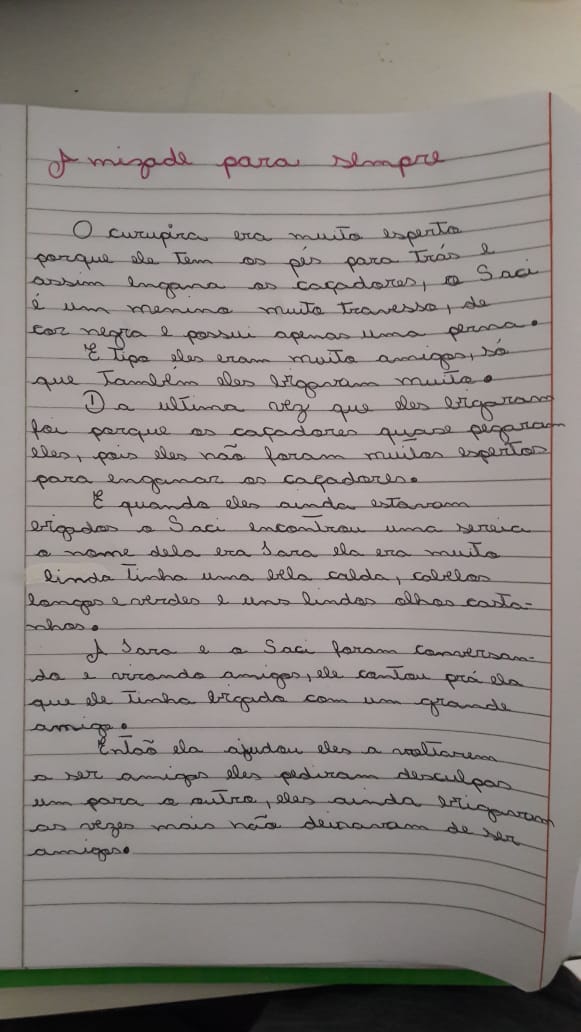 Amizade para sempre
O curupira era muito esperto
porque ele tem os pés para trás e
assim engana os caçadores, o Saci
é um menino muito travesso, de
cor negra e possui apenas uma perna.
E tipo eles eram muito amigos, só
que também eles brigavam muito.
Da ultima vez que eles brigaram
foi porque os caçadores quase pegaram
eles, pois eles não foram muitos espertos
para enganar os caçadores.
E quando eles ainda estavam
brigados o Saci encontrou uma sereia
o nome dela era Iara ela era muito
linda tinha uma bela calda, cabelos
longos e verdes e uns lindos olhos casta-
nhos.
A Iara e o Saci foram conversan-
do e virando amigos, ele contou prá ela
que ele tinha brigado com um grande
amigo.
Entaõ ela ajudou eles a voltarem
a ser amigos eles pediram desculpas
um para o outro, eles ainda brigavam
as vezes mais não deixavam de ser
amigos.